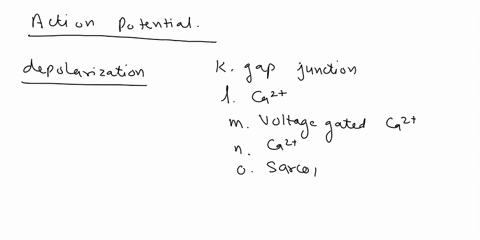 Action Potential.
depolarization
k. gap junction
l. Ca2+
m. Voltage gated Ca2+
n. Ca2+
o. Sarcol